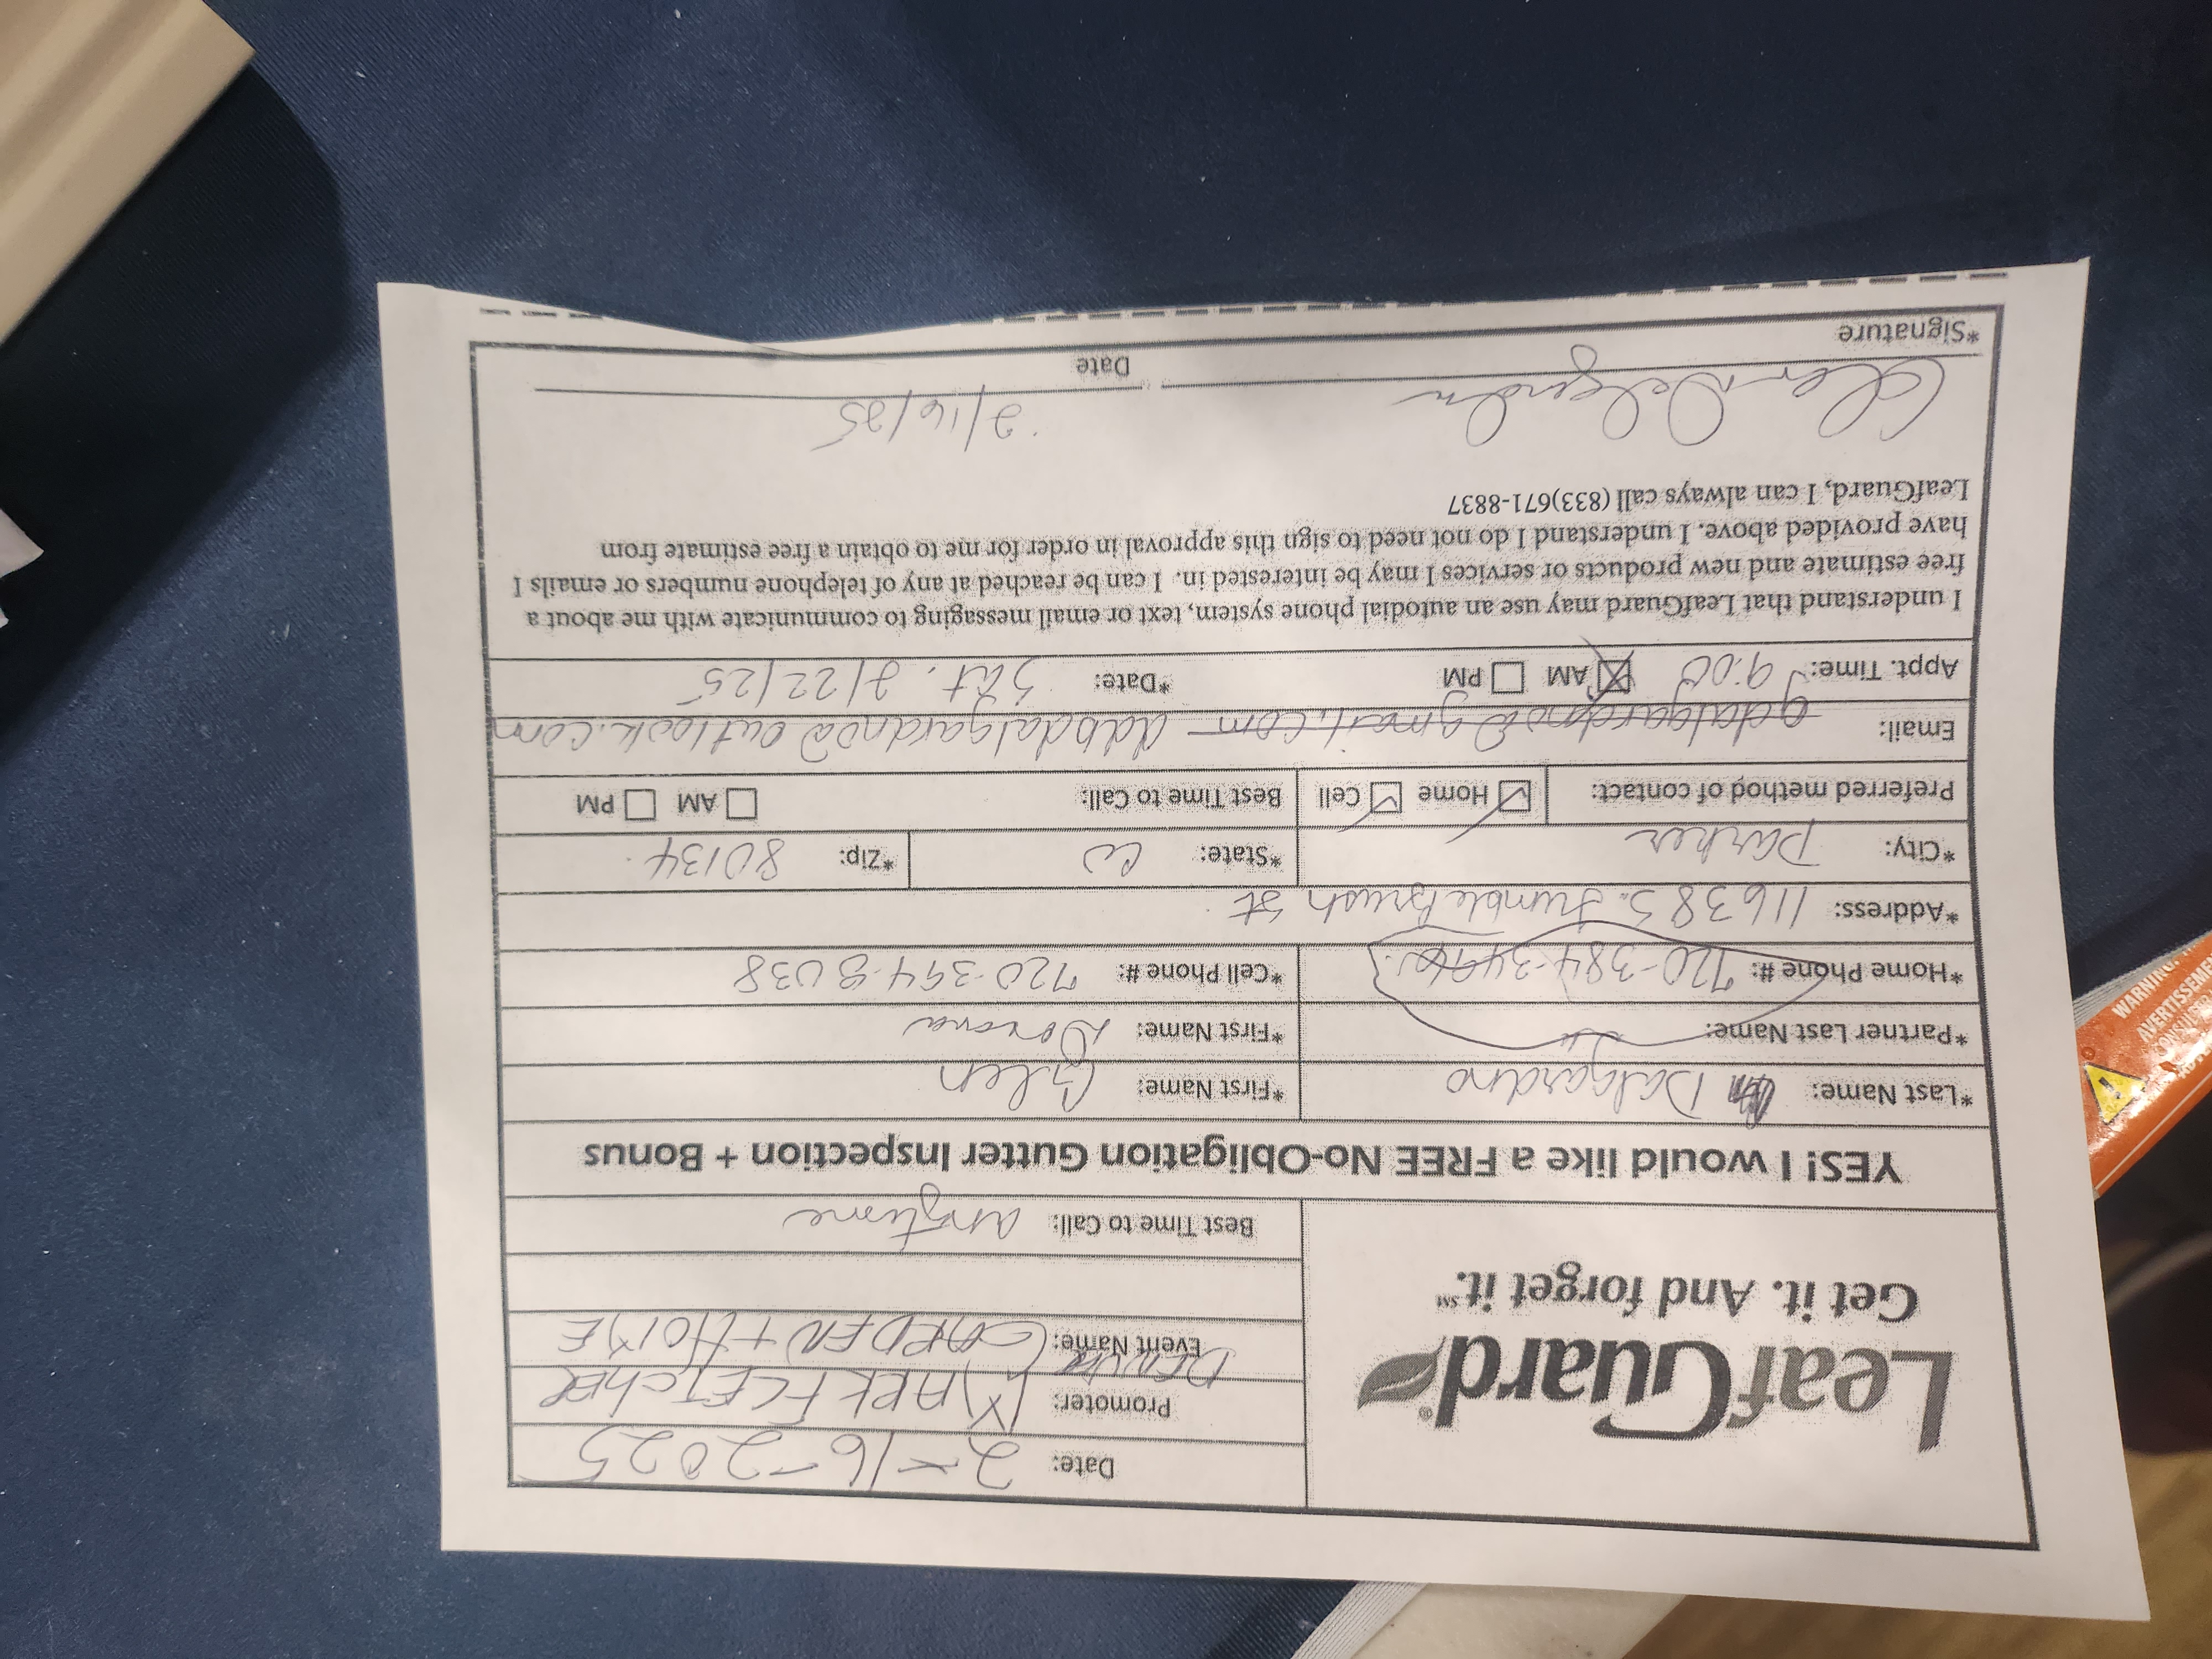 LeafGuard®
Get it. And forget it.℠
Date: 2-16-2025
Promoter: MARK FLETCHER
Event Name: DENVER GARDEN + HOME
Best Time to Call: anytime
YES! I would like a FREE No-Obligation Gutter Inspection + Bonus
*Last Name: Dalgardno *First Name: Glen
*Partner Last Name: *First Name: Donna
*Home Phone #: 720-384-3496 *Cell Phone #: 720-394-8038
*Address: 11638 S. Tumble Brush St.
*City: Parker *State: Co *Zip: 80134
Preferred method of contact: Home Cell Best Time to Call: AM PM
Email: gdalgardno@gmail.com dabdalgardno@outlook.com
Appt. Time: 9:00 AM PM *Date: Sat. 2/22/25
I understand that LeafGuard may use an autodial phone system, text or email messaging to communicate with me about a
free estimate and new products or services I may be interested in. I can be reached at any of telephone numbers or emails I
have provided above. I understand I do not need to sign this approval in order for me to obtain a free estimate from
LeafGuard, I can always call (833)671-8837
Glen Dalgardno 2/16/25
*Signature Date
WARNING
AVERTISSEMENT